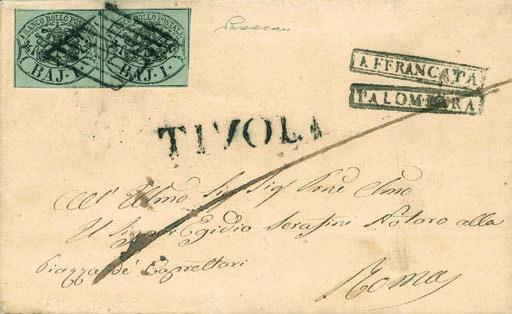 FRANCO BOLLO POSTALE FRANCO BOLLO POSTALE
BAJ. 1. BAJ. 1.
AFFRANCATA
PALOMBARA
TIVOLI
All' Illmo Sig Sig Prne Clmo
Il Sig Egidio Serafini Notaro alla
Piazza de' Caprettari
Roma